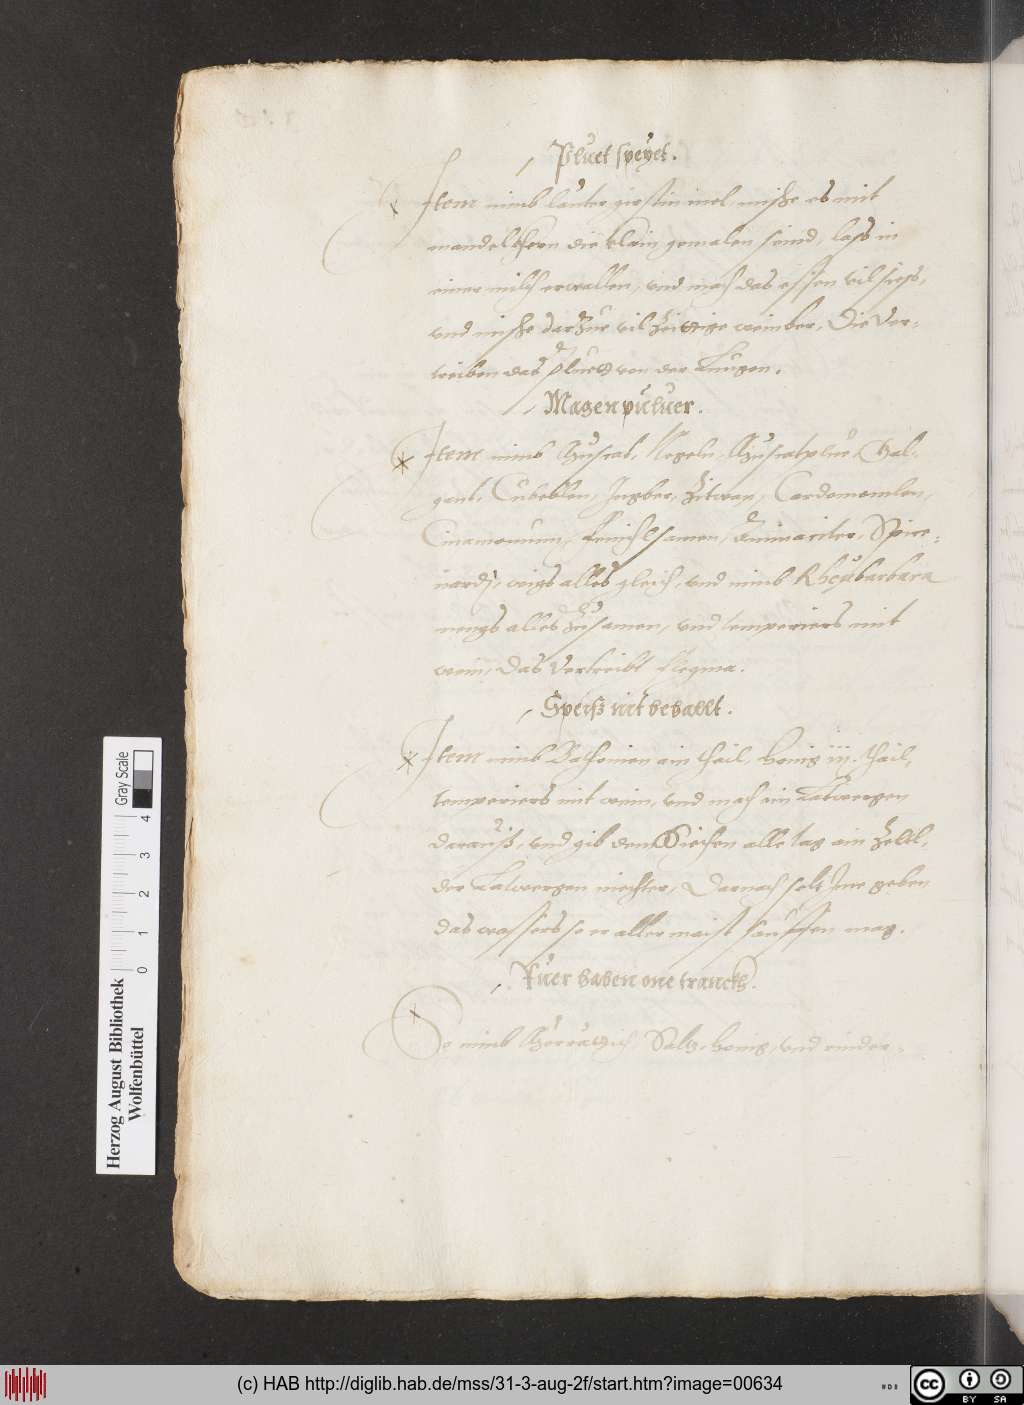 Pluet speyet.
Item nimb lauter gersten mel, mische es mit
mandel kern die klain gemalen seind, lass in
einer milch erwallen, und mach das essen vil siess,
und mische darzue vil zeittige weinber, Die ver-
treiben das Pluet von der Lungen.
Magen puluer.
Item nimb Muscat, Negeln, Muscatplüe, Gal-
gant, Cubeblen, Ingber, Zitwan, Cardomomlen,
Cinamomum, Fenichlsamen, Spice-
nardj, wigs alles gleich, und nimb Rheubarbara
mengs alles zusamen, und temperiers mit
wein, Das vertreibt flegma.
Speiss nit behallt.
Item nimb Bathonien ain thail, honig iij. thail,
temperiers mit wein, und mach ein Latwergen
darauss, und gib dem Siechen alle tag ein Zeltl,
der Latwergen niechter, Darnach solt Ime geben
das wassers so er aller maist sauffen mag.
Fuer haben one tranckh.
So nimb Merrättich, Saltz, honig, und
Herzog August Bibliothek
Wolfenbüttel
0 1 2 3 4
Gray Scale
(c) HAB http://diglib.hab.de/mss/31-3-aug-2f/start.htm?image=00634
cc
BY SA